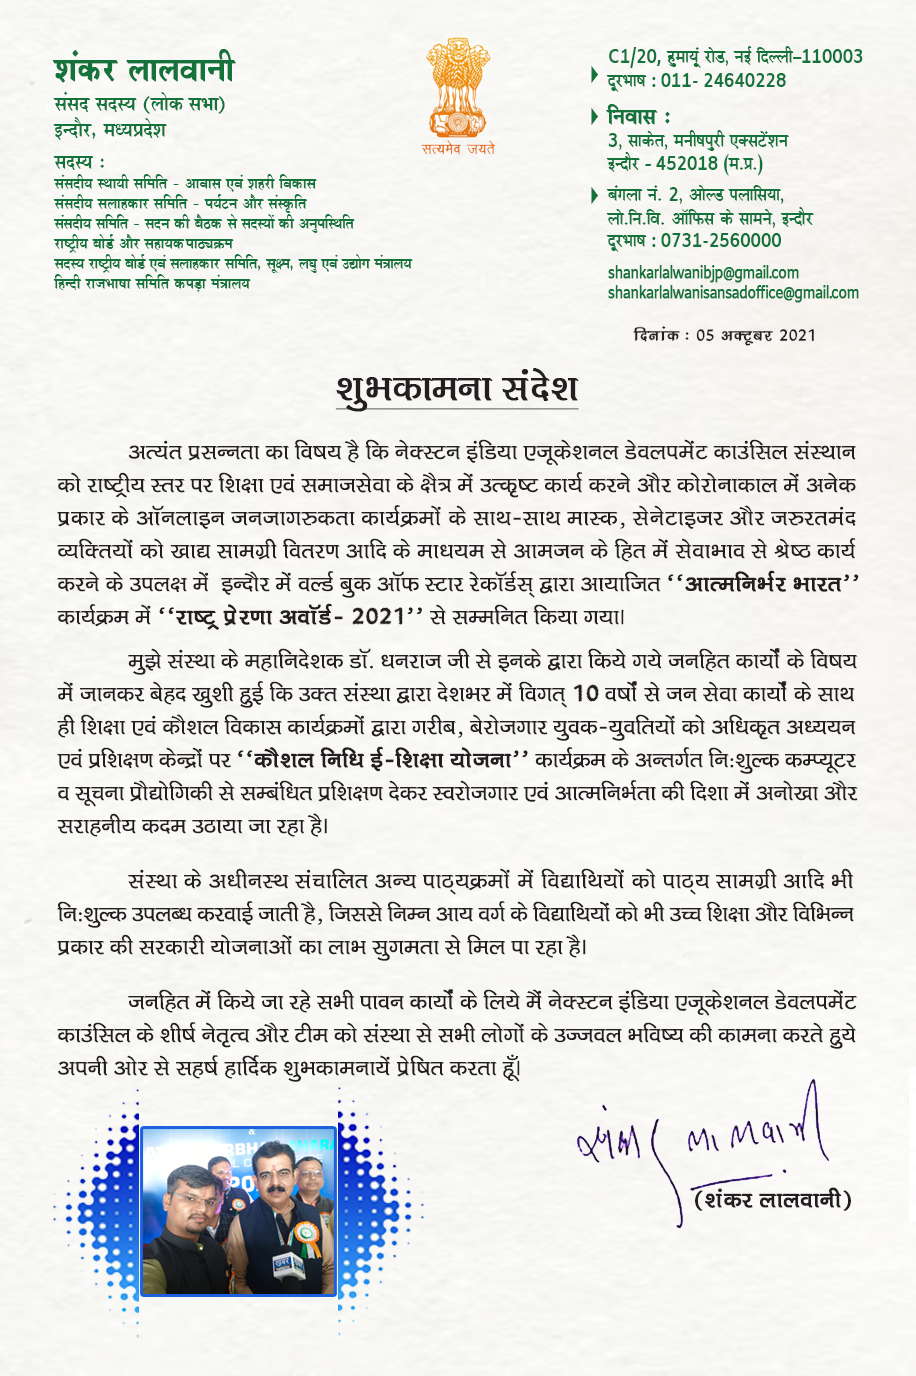 शंकर लालवानी
संसद सदस्य (लोक सभा)
इन्दौर, मध्यप्रदेश
सदस्य :
संसदीय स्थायी समिति - आवास एवं शहरी विकास
संसदीय सलाहकार समिति - पर्यटन और संस्कृति
संसदीय समिति - सदन की बैठक से सदस्यों की अनुपस्थिति
राष्ट्रीय बोर्ड और सहायक पाठ्यक्रम
सदस्य राष्ट्रीय बोर्ड एवं सलाहकार समिति, सूक्ष्म, लघु एवं उद्योग मंत्रालय
हिन्दी राजभाषा समिति कपड़ा मंत्रालय
सत्यमेव जयते
C1/20, हुमायूं रोड, नई दिल्ली–110003
दूरभाष : 011- 24640228
निवास :
3, साकेत, मनीषपुरी एक्सटेंशन
इन्दौर - 452018 (म.प्र.)
बंगला नं. 2, ओल्ड पलासिया,
लो.नि.वि. ऑफिस के सामने, इन्दौर
दूरभाष : 0731-2560000
shankarlalwanibjp@gmail.com
shankarlalwanisansadoffice@gmail.com
दिनांक : 05 अक्टूबर 2021
शुभकामना संदेश
अत्यंत प्रसन्नता का विषय है कि नेक्स्टन इंडिया एजूकेशनल डेवलपमेंट काउंसिल संस्थान
को राष्ट्रीय स्तर पर शिक्षा एवं समाजसेवा के क्षैत्र में उत्कृष्ट कार्य करने और कोरोनाकाल में अनेक
प्रकार के ऑनलाइन जनजागरुकता कार्यक्रमों के साथ-साथ मास्क, सेनेटाइजर और जरुरतमंद
व्यक्तियों को खाद्य सामग्री वितरण आदि के माधयम से आमजन के हित में सेवाभाव से श्रेष्ठ कार्य
करने के उपलक्ष में इन्दौर में वर्ल्ड बुक ऑफ स्टार रेकॉर्डस् द्वारा आयाजित ‘‘आत्मनिर्भर भारत’’
कार्यक्रम में ‘‘राष्ट्र प्रेरणा अवॉर्ड- 2021’’ से सम्मनित किया गया।
मुझे संस्था के महानिदेशक डॉ. धनराज जी से इनके द्वारा किये गये जनहित कार्यों के विषय
में जानकर बेहद खुशी हुई कि उक्त संस्था द्वारा देशभर में विगत् 10 वर्षों से जन सेवा कार्यों के साथ
ही शिक्षा एवं कौशल विकास कार्यक्रमों द्वारा गरीब, बेरोजगार युवक-युवतियों को अधिकृत अध्ययन
एवं प्रशिक्षण केन्द्रों पर ‘‘कौशल निधि ई-शिक्षा योजना’’ कार्यक्रम के अन्तर्गत नि:शुल्क कम्प्यूटर
व सूचना प्रौद्योगिकी से सम्बंधित प्रशिक्षण देकर स्वरोजगार एवं आत्मनिर्भता की दिशा में अनोखा और
सराहनीय कदम उठाया जा रहा है।
संस्था के अधीनस्थ संचालित अन्य पाठ्यक्रमों में विद्याथियों को पाठ्य सामग्री आदि भी
नि:शुल्क उपलब्ध करवाई जाती है, जिससे निम्न आय वर्ग के विद्याथियों को भी उच्च शिक्षा और विभिन्न
प्रकार की सरकारी योजनाओं का लाभ सुगमता से मिल पा रहा है।
जनहित में किये जा रहे सभी पावन कार्यों के लिये मैं नेक्स्टन इंडिया एजूकेशनल डेवलपमेंट
काउंसिल के शीर्ष नेतृत्व और टीम को संस्था से सभी लोगों के उज्जवल भविष्य की कामना करते हुये
अपनी ओर से सहर्ष हार्दिक शुभकामनायें प्रेषित करता हूँ।
शंकर लालवानी
(शंकर लालवानी)